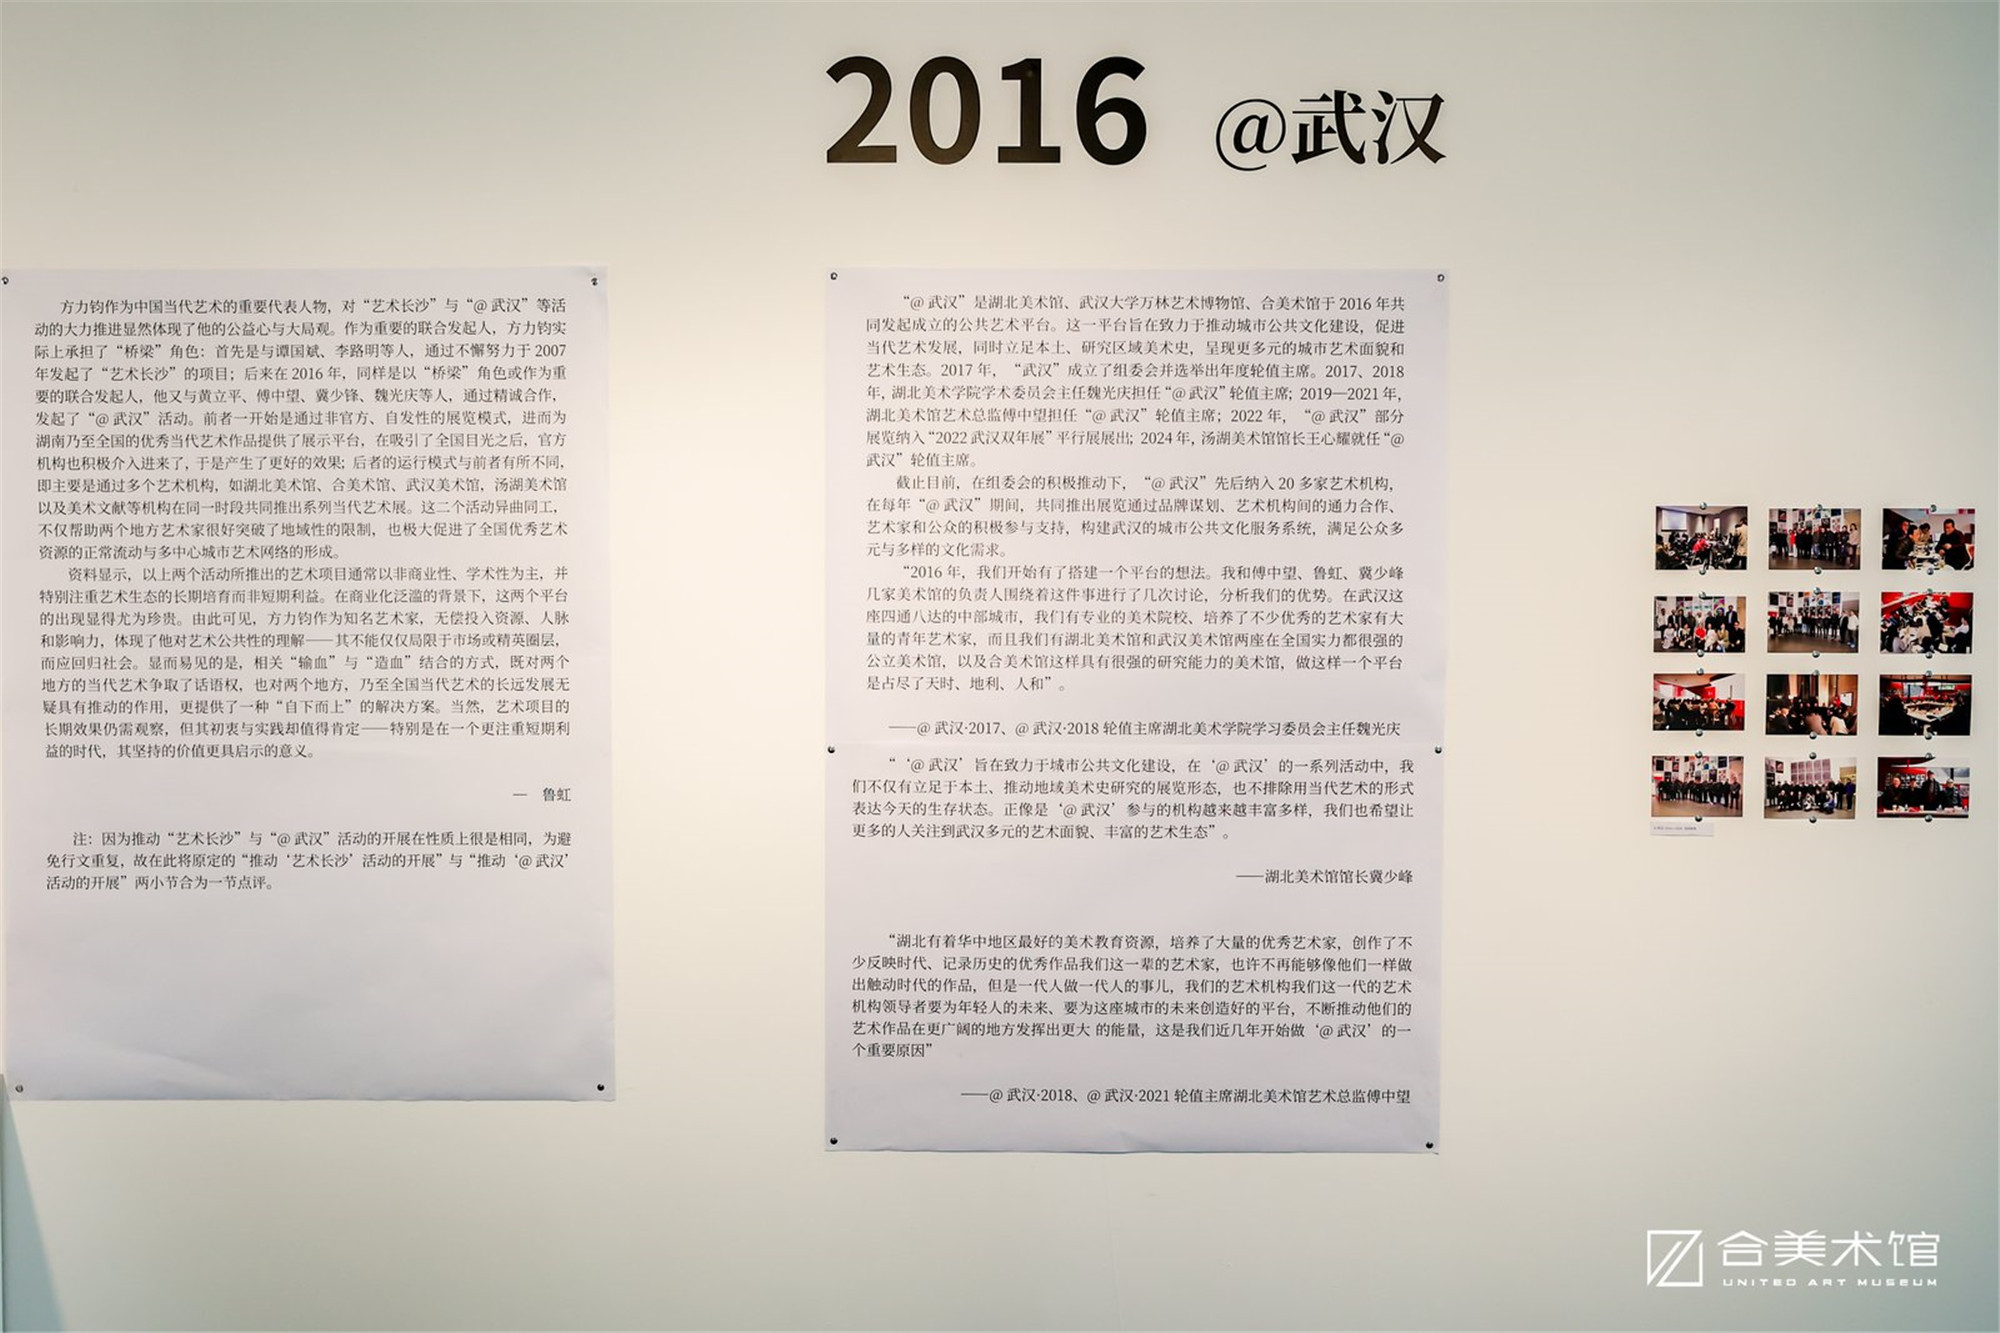 2016 @武汉
方力钧作为中国当代艺术的重要代表人物，对“艺术长沙”与“@ 武汉”等活
动的大力推进显然体现了他的公益心与大局观。作为重要的联合发起人，方力钧实
际上承担了“桥梁”角色：首先是与谭国斌、李路明等人，通过不懈努力于 2007
年发起了“艺术长沙”的项目；后来在 2016 年，同样是以“桥梁”角色或作为重
要的联合发起人，他又与黄立平、傅中望、冀少锋、魏光庆等人，通过精诚合作，
发起了“@ 武汉”活动。前者一开始是通过非官方、自发性的展览模式，进而为
湖南乃至全国的优秀当代艺术作品提供了展示平台，在吸引了全国目光之后，官方
机构也积极介入进来了，于是产生了更好的效果；后者的运行模式与前者有所不同，
即主要是通过多个艺术机构，如湖北美术馆、合美术馆、武汉美术馆，汤湖美术馆
以及美术文献等机构在同一时段共同推出系列当代艺术展。这二个活动异曲同工，
不仅帮助两个地方艺术家很好突破了地域性的限制，也极大促进了全国优秀艺术
资源的正常流动与多中心城市艺术网络的形成。
资料显示，以上两个活动所推出的艺术项目通常以非商业性、学术性为主，并
特别注重艺术生态的长期培育而非短期利益。在商业化泛滥的背景下，这两个平台
的出现显得尤为珍贵。由此可见，方力钧作为知名艺术家，无偿投入资源、人脉
和影响力，体现了他对艺术公共性的理解——其不能仅仅局限于市场或精英圈层，
而应回归社会。显而易见的是，相关“输血”与“造血”结合的方式，既对两个
地方的当代艺术争取了话语权，也对两个地方，乃至全国当代艺术的长远发展无
疑具有推动的作用，更提供了一种“自下而上”的解决方案。当然，艺术项目的
长期效果仍需观察，但其初衷与实践却值得肯定——特别是在一个更注重短期利
益的时代，其坚持的价值更具启示的意义。
— 鲁虹
注：因为推动“艺术长沙”与“@ 武汉”活动的开展在性质上很是相同，为避
免行文重复，故在此将原定的“推动‘艺术长沙’活动的开展”与“推动‘@ 武汉’
活动的开展”两小节合为一节点评。
“@ 武汉”是湖北美术馆、武汉大学万林艺术博物馆、合美术馆于 2016 年共
同发起成立的公共艺术平台。这一平台旨在致力于推动城市公共文化建设，促进
当代艺术发展，同时立足本土、研究区域美术史，呈现更多元的城市艺术面貌和
艺术生态。2017 年，“武汉”成立了组委会并选举出年度轮值主席。2017、2018
年，湖北美术学院学术委员会主任魏光庆担任“@ 武汉”轮值主席；2019—2021 年，
湖北美术馆艺术总监傅中望担任“@ 武汉”轮值主席；2022 年，“@ 武汉”部分
展览纳入“2022 武汉双年展”平行展展出；2024 年，汤湖美术馆馆长王心耀就任“@
武汉”轮值主席。
截止目前，在组委会的积极推动下，“@ 武汉”先后纳入 20 多家艺术机构，
在每年“@ 武汉”期间，共同推出展览通过品牌谋划、艺术机构间的通力合作、
艺术家和公众的积极参与支持，构建武汉的城市公共文化服务系统，满足公众多
元与多样的文化需求。
“2016 年，我们开始有了搭建一个平台的想法。我和傅中望、鲁虹、冀少峰
几家美术馆的负责人围绕着这件事进行了几次讨论，分析我们的优势。在武汉这
座四通八达的中部城市，我们有专业的美术院校、培养了不少优秀的艺术家有大
量的青年艺术家，而且我们有湖北美术馆和武汉美术馆两座在全国实力都很强的
公立美术馆，以及合美术馆这样具有很强的研究能力的美术馆，做这样一个平台
是占尽了天时、地利、人和”。
——@ 武汉·2017、@ 武汉·2018 轮值主席湖北美术学院学习委员会主任魏光庆
“‘@ 武汉’旨在致力于城市公共文化建设，在‘@ 武汉’的一系列活动中，我
们不仅有立足于本土、推动地域美术史研究的展览形态，也不排除用当代艺术的形式
表达今天的生存状态。正像是‘@ 武汉’参与的机构越来越丰富多样，我们也希望让
更多的人关注到武汉多元的艺术面貌、丰富的艺术生态”。
——湖北美术馆馆长冀少峰
“湖北有着华中地区最好的美术教育资源，培养了大量的优秀艺术家，创作了不
少反映时代、记录历史的优秀作品我们这一辈的艺术家，也许不再能够像他们一样做
出触动时代的作品，但是一代人做一代人的事儿，我们的艺术机构我们这一代的艺术
机构领导者要为年轻人的未来、要为这座城市的未来创造好的平台，不断推动他们的
艺术作品在更广阔的地方发挥出更大 的能量，这是我们近几年开始做‘@ 武汉’的一
个重要原因”
——@ 武汉·2018、@ 武汉·2021 轮值主席湖北美术馆艺术总监傅中望
合美术馆
UNITED ART MUSEUM